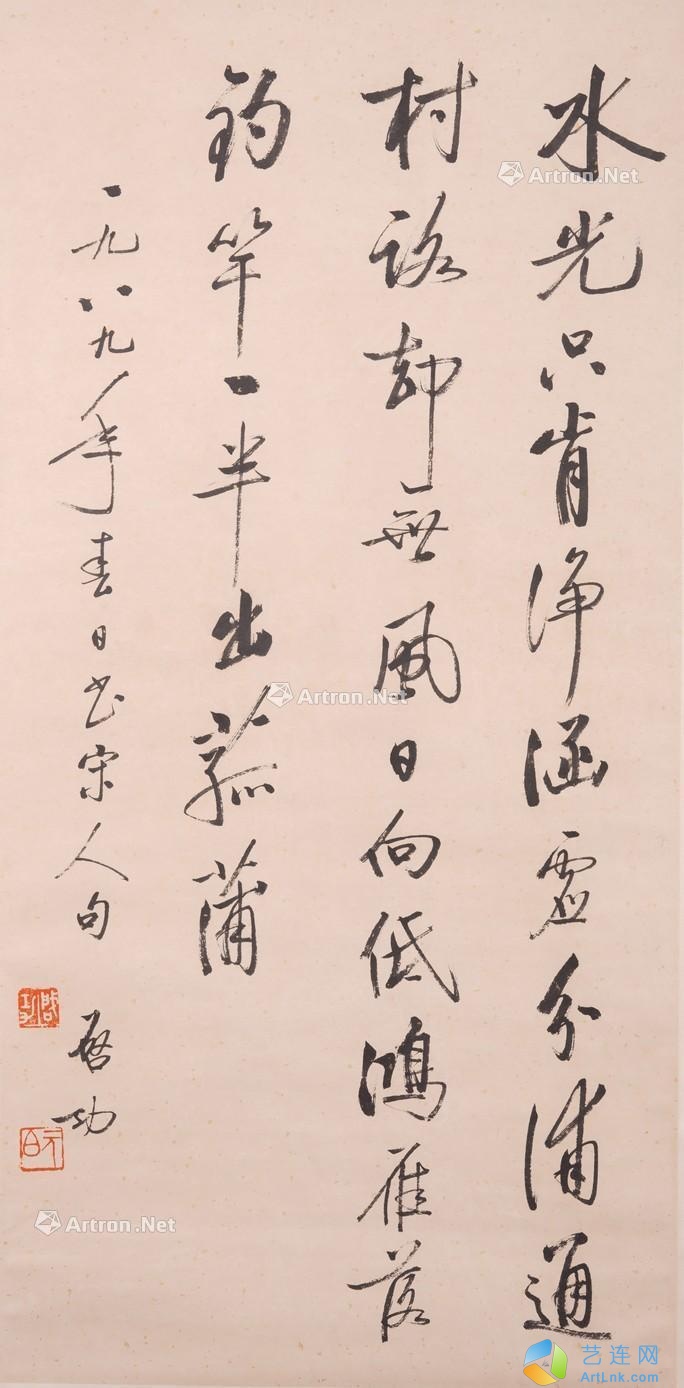 水光只肯净涵虚分浦通
村路却無風日向低鴻雁落
釣竿一半出菰蒲
一九八九年春日书宋人句
启功
启功
元白
Artron.Net
Artron.Net
Artron.Net
艺连网
ArtLnk.com